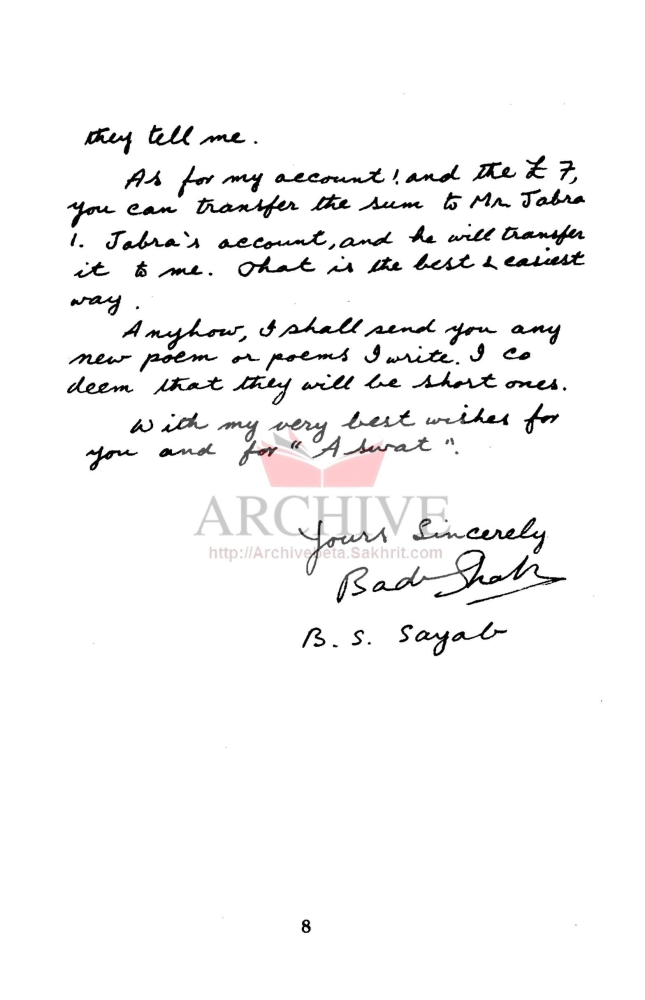 they tell me.
As for my account! and the £ 7,
you can transfer the sum to Mr. Jabra
I. Jabra's account, and he will transfer
it to me. That is the best & easiest
way.
Anyhow, I shall send you any
new poem or poems I write. I co
deem that they will be short ones.
With my very best wishes for
you and for "Aswat".
ARCHIVE
http://Archivebeta.Sakhrit.com
Yours Sincerely
Badr Shak
B. S. Sayab
8